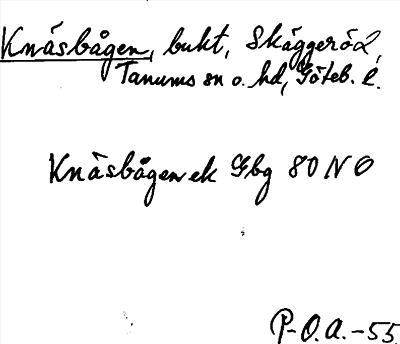 Knäsbågen, bukt, Skäggeröd,
Tanums sn o. hd, Göteb. l.
Knäsbågen ek Gbg 80 NO
P-O.A.-55